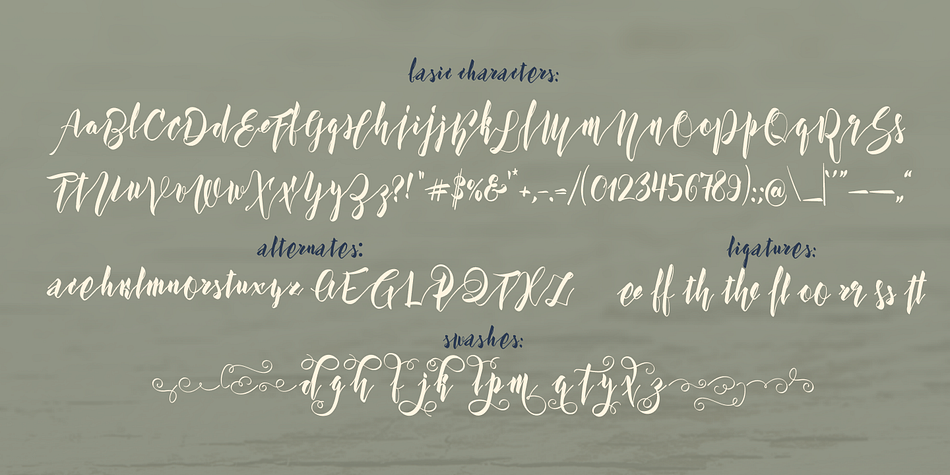 basic characters:
AaBbCcDdEeFfGgHhIiJjKkLlMmNnOoPpQqRrSs
TtUuVvWwXxYyZz?!"#$%&'*+,-.=/(0123456789):;@\_|‘’“—–„“
alternates:
ligatures:
acehklmnorstuxyz AEGLPQTXZ
ee ff th the fl oo rr ss tt
swashes:
dgh f jk lpm qtyxz